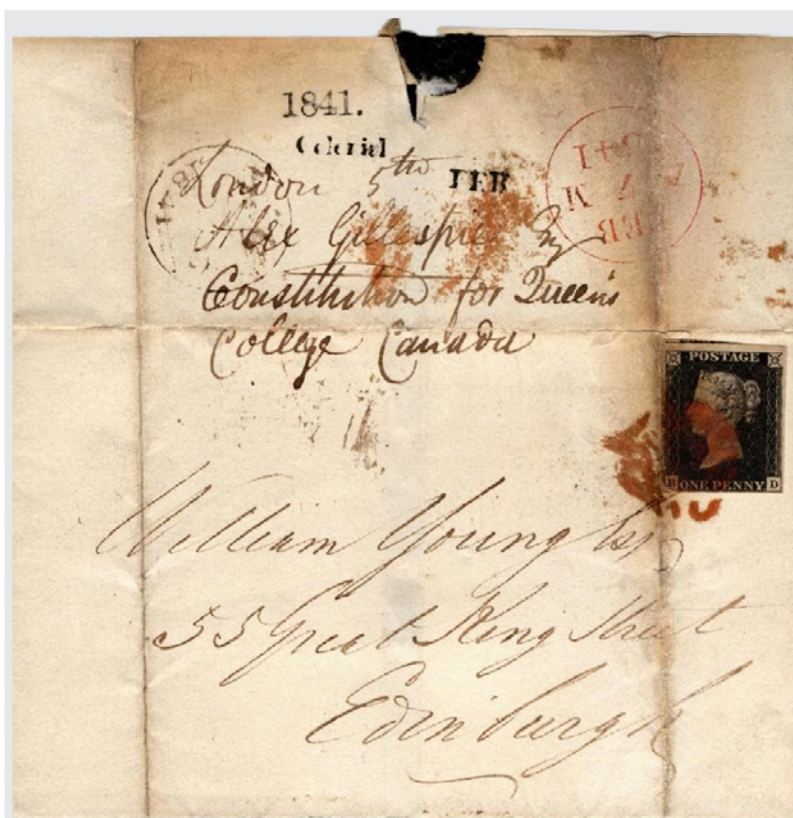 1841.
Colonial
London 5th FEB
Alex Gillespie Esq
Constitution for Queen's
College Canada
POSTAGE
B ONE PENNY D
William Young Esq
55 Great King Street
Edinburgh